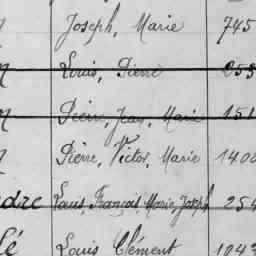 Joseph, Marie 745
Louis, Pierre 253
Pierre, Jean, Marie 151
Pierre, Victor, Marie 1400
dre Louis, François, Marie, Joseph 254
lé Louis Clément 1043